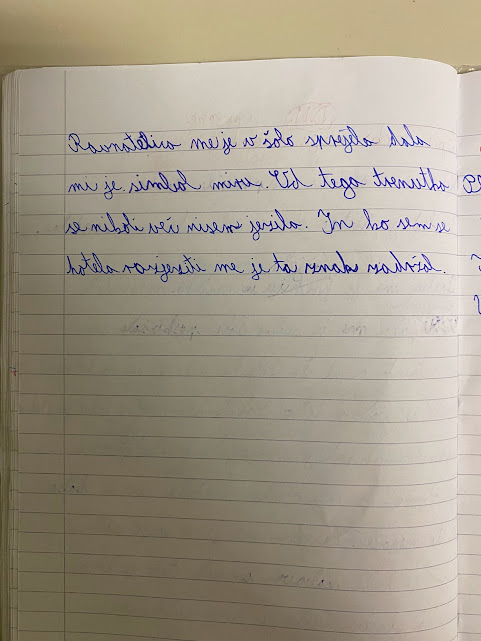 Ravnateljica me je v šolo sprejela dala
mi je simbol miru. Od tega trenutka
se nikoli več nisem jezila. In ko sem se
hotela razjeziti me je ta znak